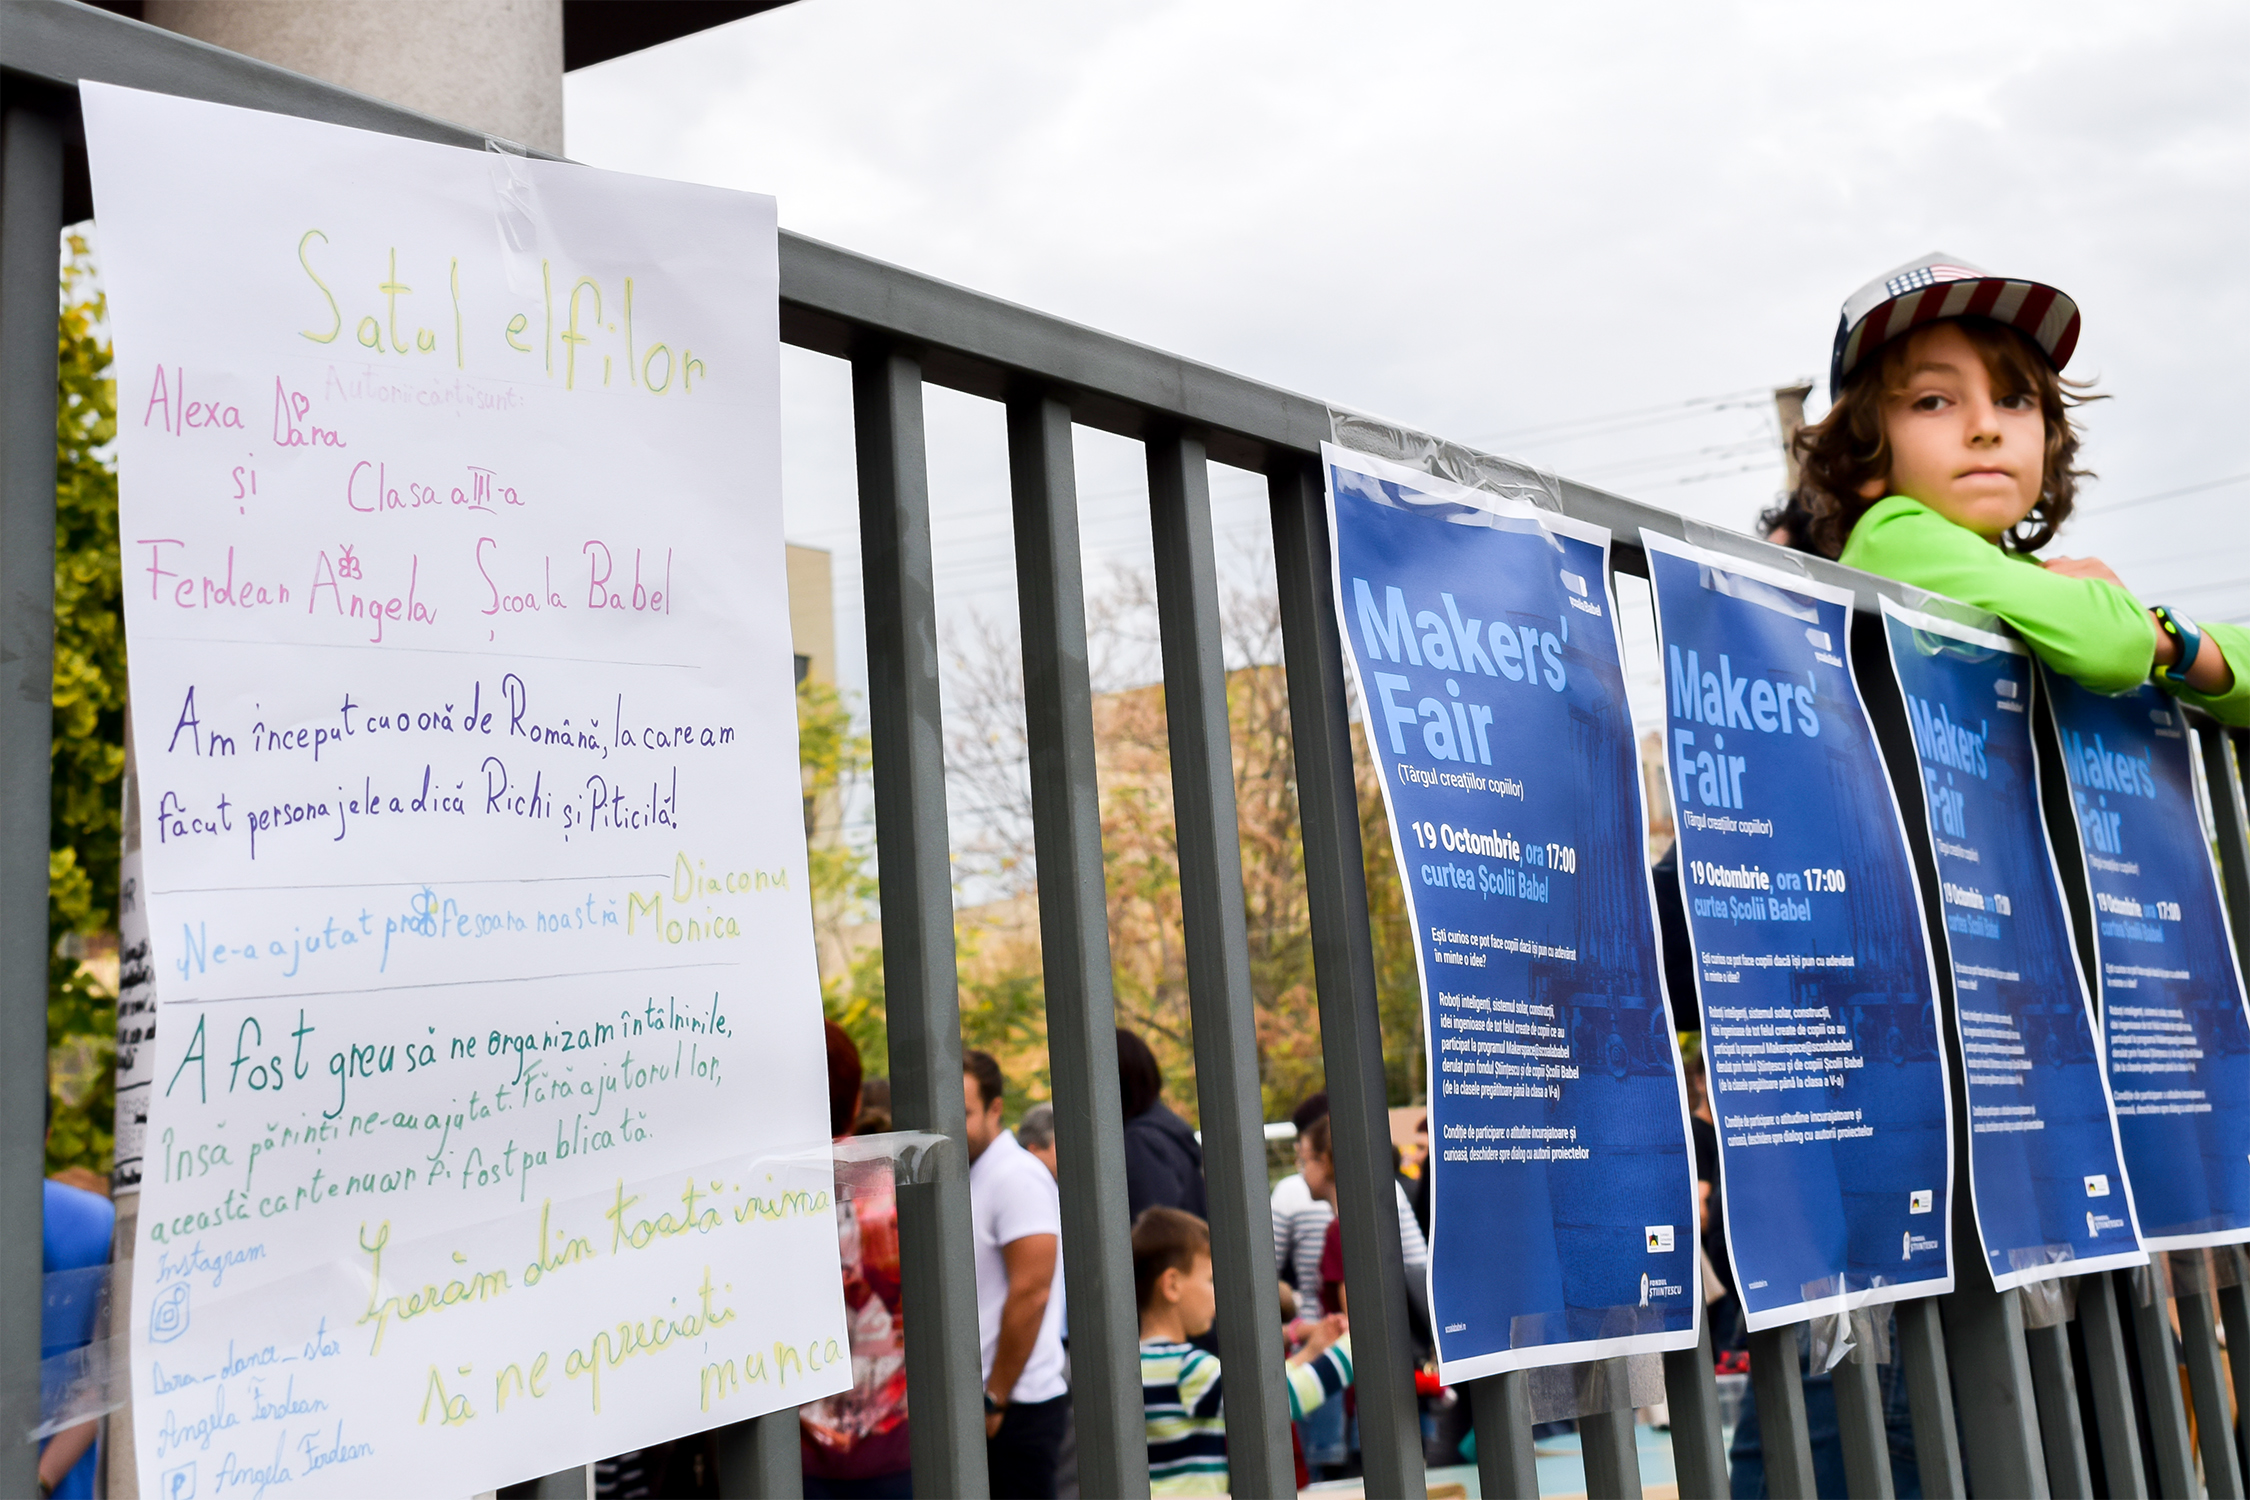 Satul elfilor
Autorii cărții sunt:
Alexa Dara
și Clasa a III-a
Ferdean Angela Școala Babel
Am început cu o oră de Română, la care am
făcut personajele adică Richi și Piticilă!
Ne-a ajutat profesoara noastră Diaconu
Monica
A fost greu să ne organizam întâlnirile,
Însă părinți ne-au ajutat. Fără ajutorul lor,
această carte nu ar fi fost publicată.
Sperăm din toată inima
să ne apreciați
munca
Instagram
Dara_dana_star
Angela Ferdean
Angela Ferdean
școala Babel
Makers'
Fair
(Târgul creațiilor copiilor)
19 Octombrie, ora 17:00
curtea Școlii Babel
Ești curios ce pot face copiii dacă își pun cu adevărat
în minte o idee?
Roboți inteligenți, sistemul solar, construcții,
idei ingenioase de tot felul create de copiii ce au
participat la programul Makerspace@scoalababel
derulat prin fondul Științescu și de copiii Școlii Babel
(de la clasele pregătitoare până la clasa a V-a)
Condiție de participare: o atitudine incurajatoare și
curioasă, deschidere spre dialog cu autorii proiectelor
FONDUL
ȘTIINȚESCU
scoalababel.ro
școala Babel
Makers'
Fair
(Târgul creațiilor copiilor)
19 Octombrie, ora 17:00
curtea Școlii Babel
Ești curios ce pot face copiii dacă își pun cu adevărat
în minte o idee?
Roboți inteligenți, sistemul solar, construcții,
idei ingenioase de tot felul create de copiii ce au
participat la programul Makerspace@scoalababel
derulat prin fondul Științescu și de copiii Școlii Babel
(de la clasele pregătitoare până la clasa a V-a)
Condiție de participare: o atitudine incurajatoare și
curioasă, deschidere spre dialog cu autorii proiectelor
FONDUL
ȘTIINȚESCU
scoalababel.ro
Makers'
Fair
(Târgul creațiilor copiilor)
19 Octombrie, ora 17:00
curtea Școlii Babel
Makers'
Fair
(Târgul creațiilor copiilor)
19 Octombrie, ora 17:00
curtea Școlii Babel